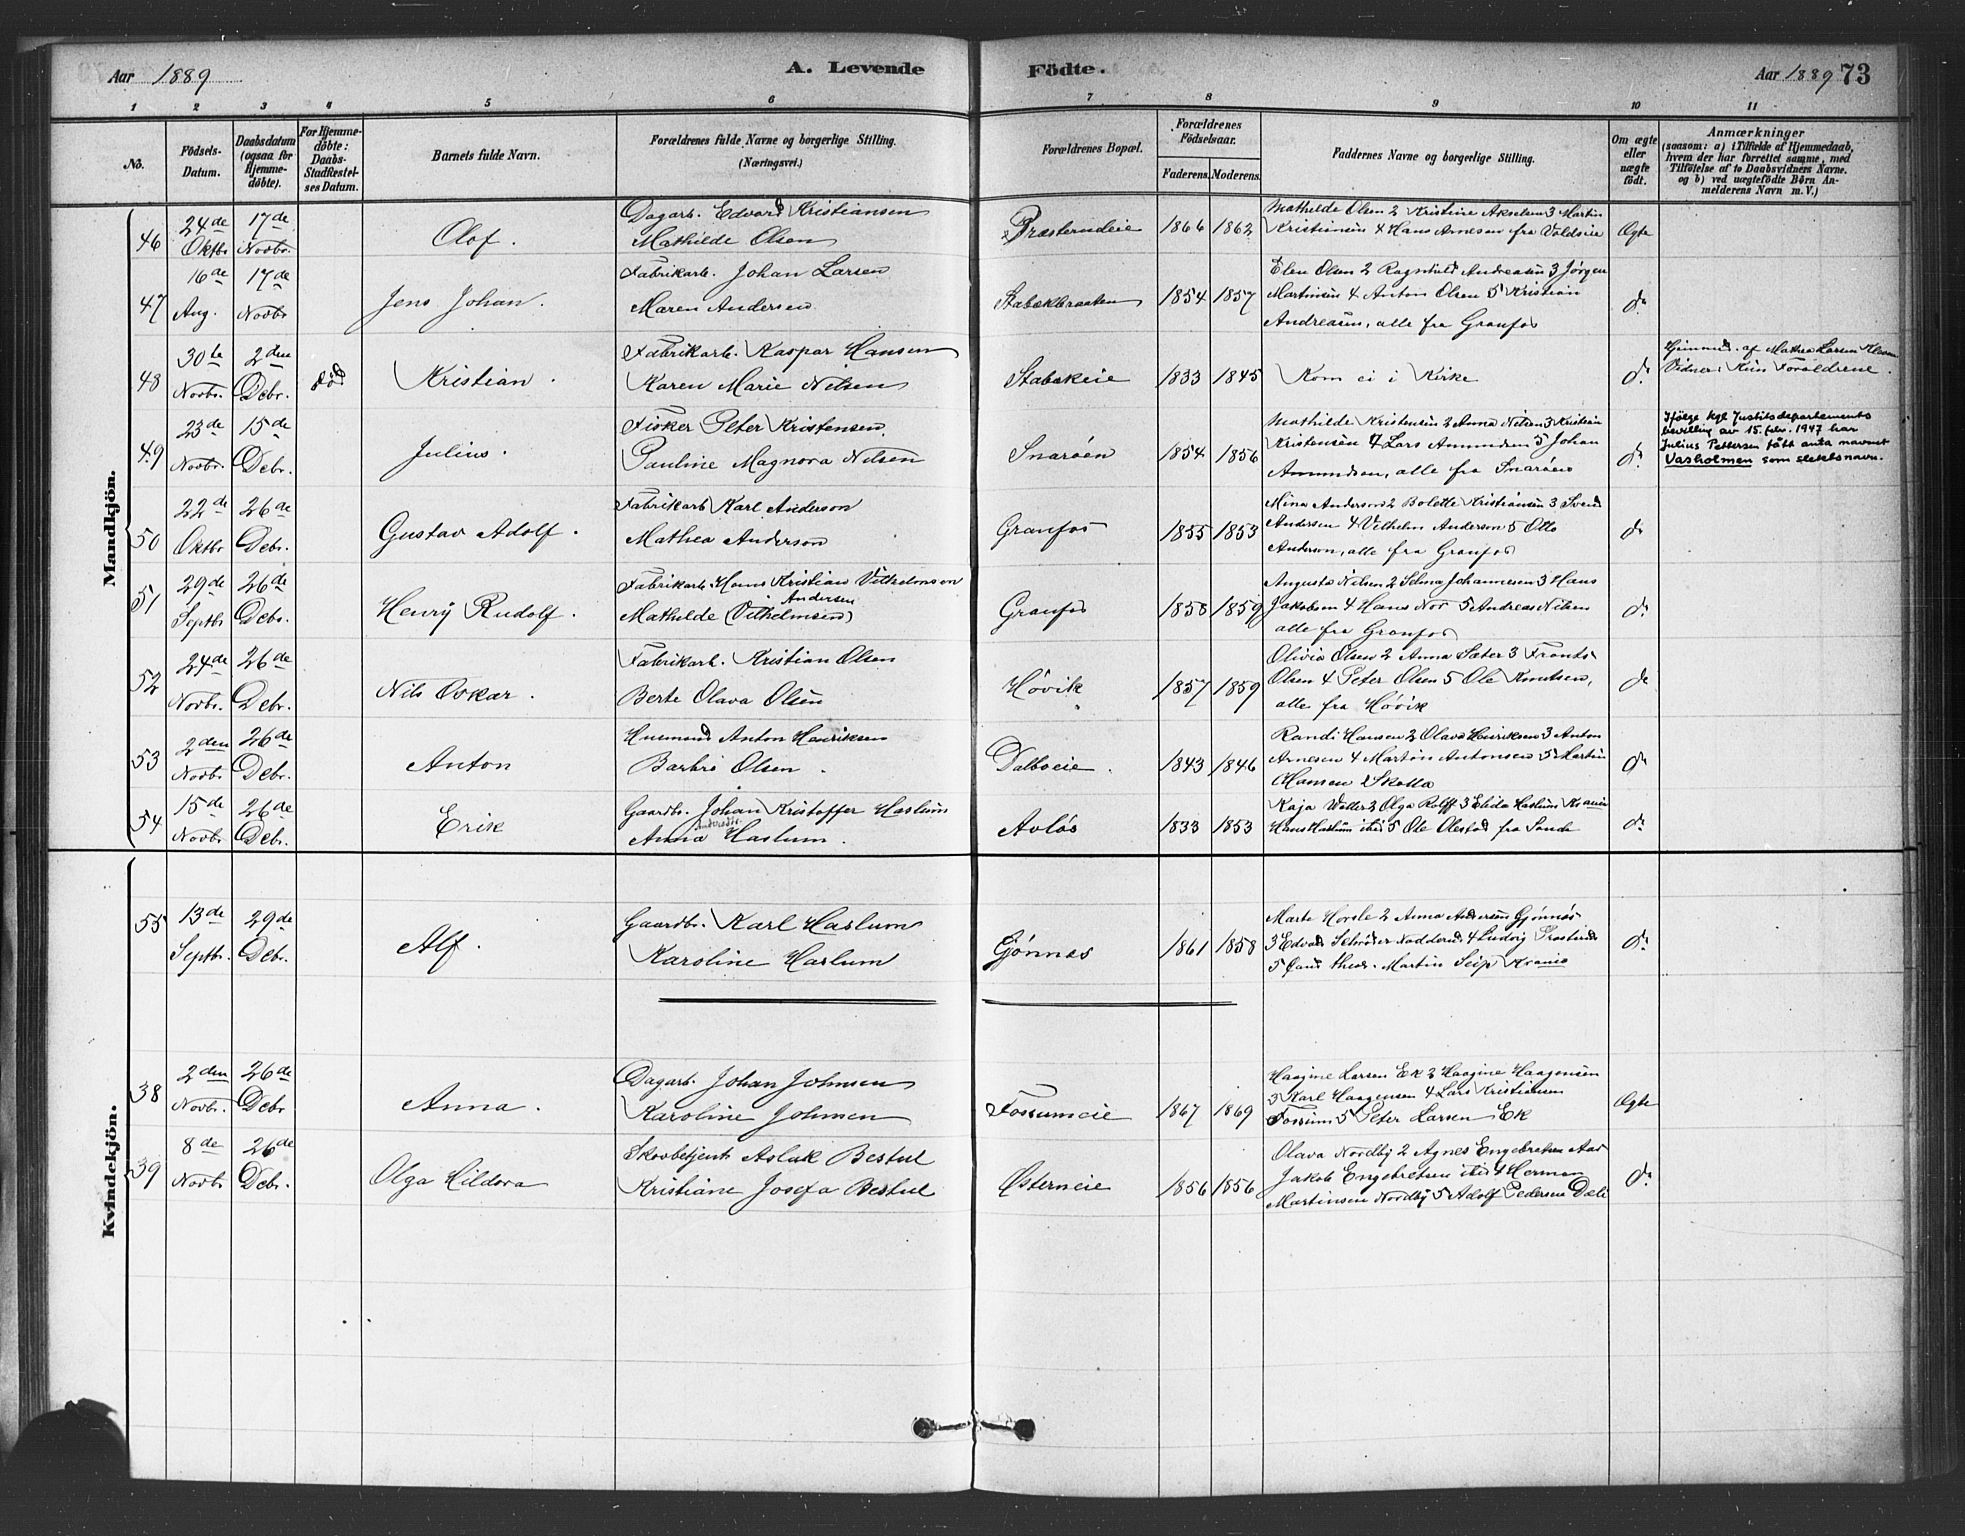 Aar 1889
A. Levende
Födte.
Aar 1889 73
1 2 3 4 5 6 7 8 9 10 11
No.
Födsels-
Datum.
Daabsdatum
(ogsaa for
Hjemme-
döbte).
For Hjemme-
döbte:
Daabs-
Stadfæstel-
ses Datum.
Barnets fulde Navn.
Forældrenes fulde Navne og borgerlige Stilling.
(Næringsvei.)
Forældrenes Bopæl.
Forældrenes
Födselsaar.
Faderens. Moderens.
Faddernes Navne og borgerlige Stilling.
Om ægte
eller
uægte
födt.
Anmærkninger
(saasom: a) i Tilfælde af Hjemmedaab,
hvem der har forrettet samme, med
Tilföielse af to Daabsvidners Navne.
og b) ved uægtefödte Börn An-
melderens Navn m. V.)
Mandkjön.
46 24de Oktbr. 17de Novbr. Olof.
Dagarb. Edvard Kristiansen
Mathilde Olsen
Præsterudeie 1866 1862
Mathilde Olsen 2 Kristine Akselsen 3 Martin
Kristiansen 4 Hans Arnesen fra Voldseie
Ægte
47 16de Aug. 17de Novbr Jens Johan.
Fabrikarb. Johan Larsen
Maren Andersen
Stabækbraaten 1854 1857
Elen Olsen 2 Ragnhild Andreasen 3 Jørgen
Martinsen 4 Anton Olsen 5 Kristian
Andreasen, alle fra Granfos
do
48 30te Novbr. 2den Debr. død Kristian.
Fabrikarb. Kaspar Hansen
Karen Marie Nilsen
Stabækeie 1833 1845
Kom ei i Kirke
do
Hjemmed. af Mathea Larsen
Vidner: Kun Forældrene.
49 23de Novbr. 15de Debr. Julius.
Fisker Peter Kristensen
Pauline Magnora Nilsen
Snarøen 1854 1856
Mathilde Kristensen 2 Anna Nilsen 3 Kristian
Kristensen 4 Lars Amundsen 5 Johan
Amundsen, alle fra Snarøen
do
Ifølge kgl Justitsdepartements
bevilling av 15. febr. 1947 har
Julius Pettersen fått anta navnet
Vasholmen som slektsnavn.
50 22de Oktbr 26de Debr. Gustav Adolf.
Fabrikarb Karl Anderson
Mathea Anderson
Granfos 1855 1853
Mina Anderson 2 Bolette Kristiansen 3 Svend
Andersen 4 Vilhelm Anderson 5 Otto
Anderson, alle fra Granfos
do
51 29de Septbr 26de Debr. Henry Rudolf.
Fabrikarb. Hans Kristian Vilhelmsen
Andersen
Mathilde (Vilhelmsen)
Granfos 1858 1859
Augusta Nilsen 2 Selma Johannesen 3 Hans
Jakobsen 4 Hans Nor 5 Andreas Nilsen
alle fra Granfos
do
52 24de Novbr. 26de Debr. Nils Oskar.
Fabrikarb. Kristian Olsen
Berte Olava Olsen
Høvik 1857 1859
Olivia Olsen 2 Anna Sæter 3 Frants
Olsen 4 Peter Olsen 5 Ole Knutsen,
alle fra Høvik
do
53 2den Novbr. 26de Debr. Anton
Husmand Anton Henriksen
Barbro Olsen.
Dalboeie. 1843 1846
Randi Hansen 2 Olava Henriksen 3 Anton
Arnesen 4 Martin Antonsen 5 Martin
Hansen Skolla
do
54 15de Novbr 26de Debr. Erik
Gaardbr. Johan Kristoffer Haslum
Anna Haslum.
Avløs 1833 1853
Kaja Walter 2 Olga Rolff 3 Elida Haslum
Hans Haslum ibid 5 Ole Olestad fra Sande
do
55 13de Septbr. 29de Debr. Alf.
Gaardbr. Karl Haslum
Karoline Haslum
Gjønnes 1861 1858
Marte Horsle 2 Anna Andersen Gjønnes
3 Edvard Schrøter Nadderud 4 Ludvig
5 Cand. theol. Martin Seip Krania
do
Kvindekjön.
38 2den Novbr. 26de Debr Anna.
Dagarb. Johan Johnsen
Karoline Johnsen
Fossumeie 1867 1869
Haagine Larsen Ek 2 Haagine Haagensen
3 Karl Haagensen 4 Lars Kristiansen
Fossum 5 Peter Larsen Ek
Ægte
39 8de Novbr 26de Debr. Olga Hildora
Skovbetjent Aslak Bestul
Kristiane Josefa Bestul
Østerneie 1856 1856
Olava Nordby 2 Agnes Engebretsen Aas
Jakob Engebretsen ibid 4 Herman
Martinsen Nordby 5 Adolf Pedersen Dæli
do